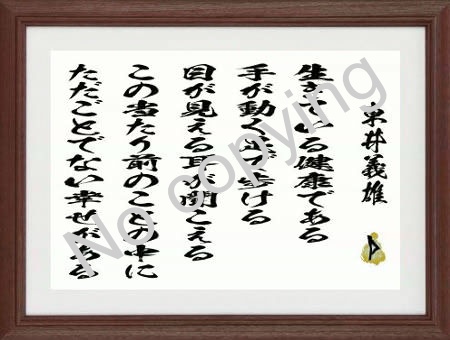 東井義雄
生きている健康である
手が動く足で歩ける
目が見える耳が聞こえる
この当たり前のことの中に
ただごとでない幸せがある
No copying